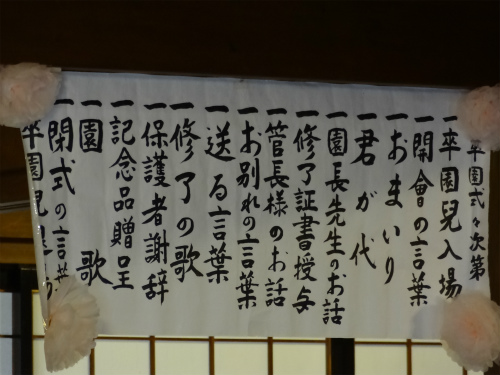 卒園式々次第
一卒園児入場
一開會の言葉
一おまいり
一君が代
一園長先生のお話
一修了証書授与
一管長様のお話
一お別れの言葉
一送る言葉
一修了の歌
一保護者謝辞
一記念品贈呈
一園歌
一閉式の言葉
卒園児